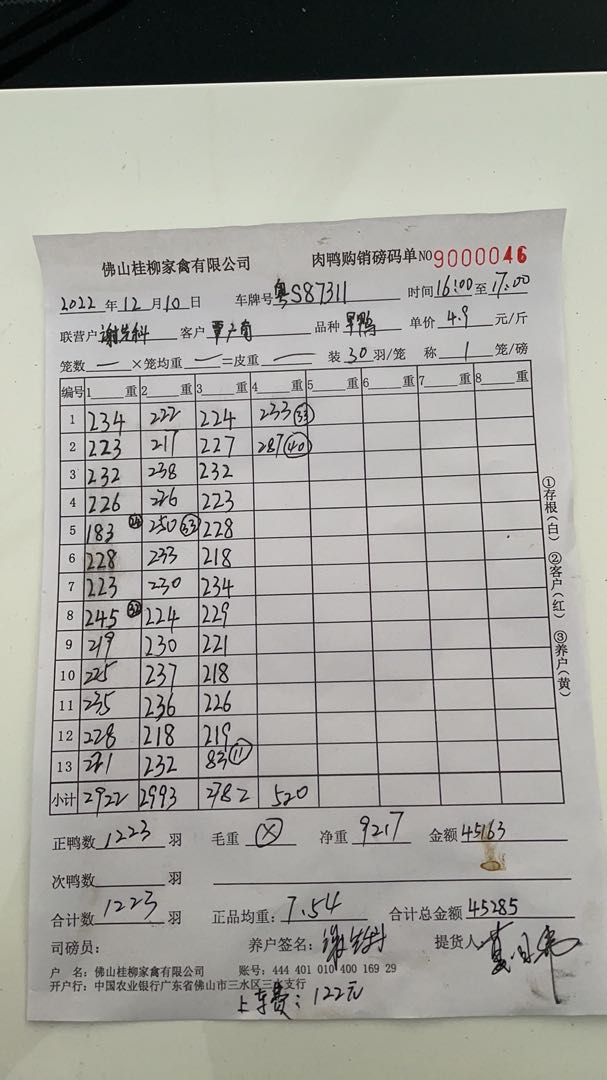 佛山桂柳家禽有限公司 肉鸭购销磅码单 NO 9000046
2022 年 12 月 10 日 车牌号 粤S87311 时间 16:00 至 17:00
联营户 客户 品种 单价 4.9 元/斤
笼数 — ×笼均重 — =皮重 — 装 30 羽/笼 称 1 笼/磅
编号 1 重 2 重 3 重 4 重 5 重 6 重 7 重 8 重
1 234 222 224 233 ㉝
2 223 217 227 287 ㊵
3 232 238 232
4 226 226 223
5 183 ㉔ 250 ㉝ 228
6 228 233 218
7 223 230 234
8 245 ㉜ 224 229
9 219 230 221
10 225 237 218
11 235 236 226
12 228 218 219
13 221 232 83 ⑪
小计 2922 2993 2782 520
①存根(白) ②客户(红) ③养户(黄)
正鸭数 1223 羽 毛重 ⓧ 净重 9217 金额 45163
次鸭数 羽
合计数 1223 羽 正品均重: 7.54 合计总金额 45285
司磅员: 养户签名: 提货人
户 名: 佛山桂柳家禽有限公司 账号: 444 401 010 400 169 29
开户行: 中国农业银行广东省佛山市三水区三水支行
上车费: 122元